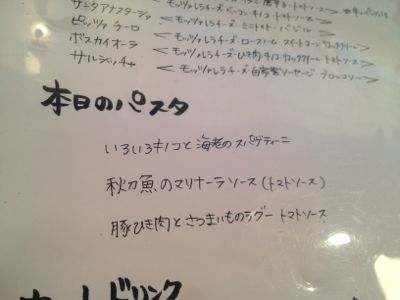 サンタアナスターシャ <モッツァレラチーズ・ベーコン・キノコ・トマトソース>
ピッツァ チーロ <モッツァレラチーズ・ミニトマト・バジル>
ボスカイオーラ <モッツァレラチーズ・ロースハム・スイートコーン・リコッタクリーム>
サルシッチャ <モッツァレラチーズ・ひき肉・キノコ・リコッタクリーム・トマトソース>
<モッツァレラチーズ・自家製ソーセージ・ブロッコリー>
本日のパスタ
いろいろキノコと海老のスパゲティーニ
秋刀魚のマリナーラソース(トマトソース)
豚ひき肉とさつまいものラグー トマトソース
ドリンク